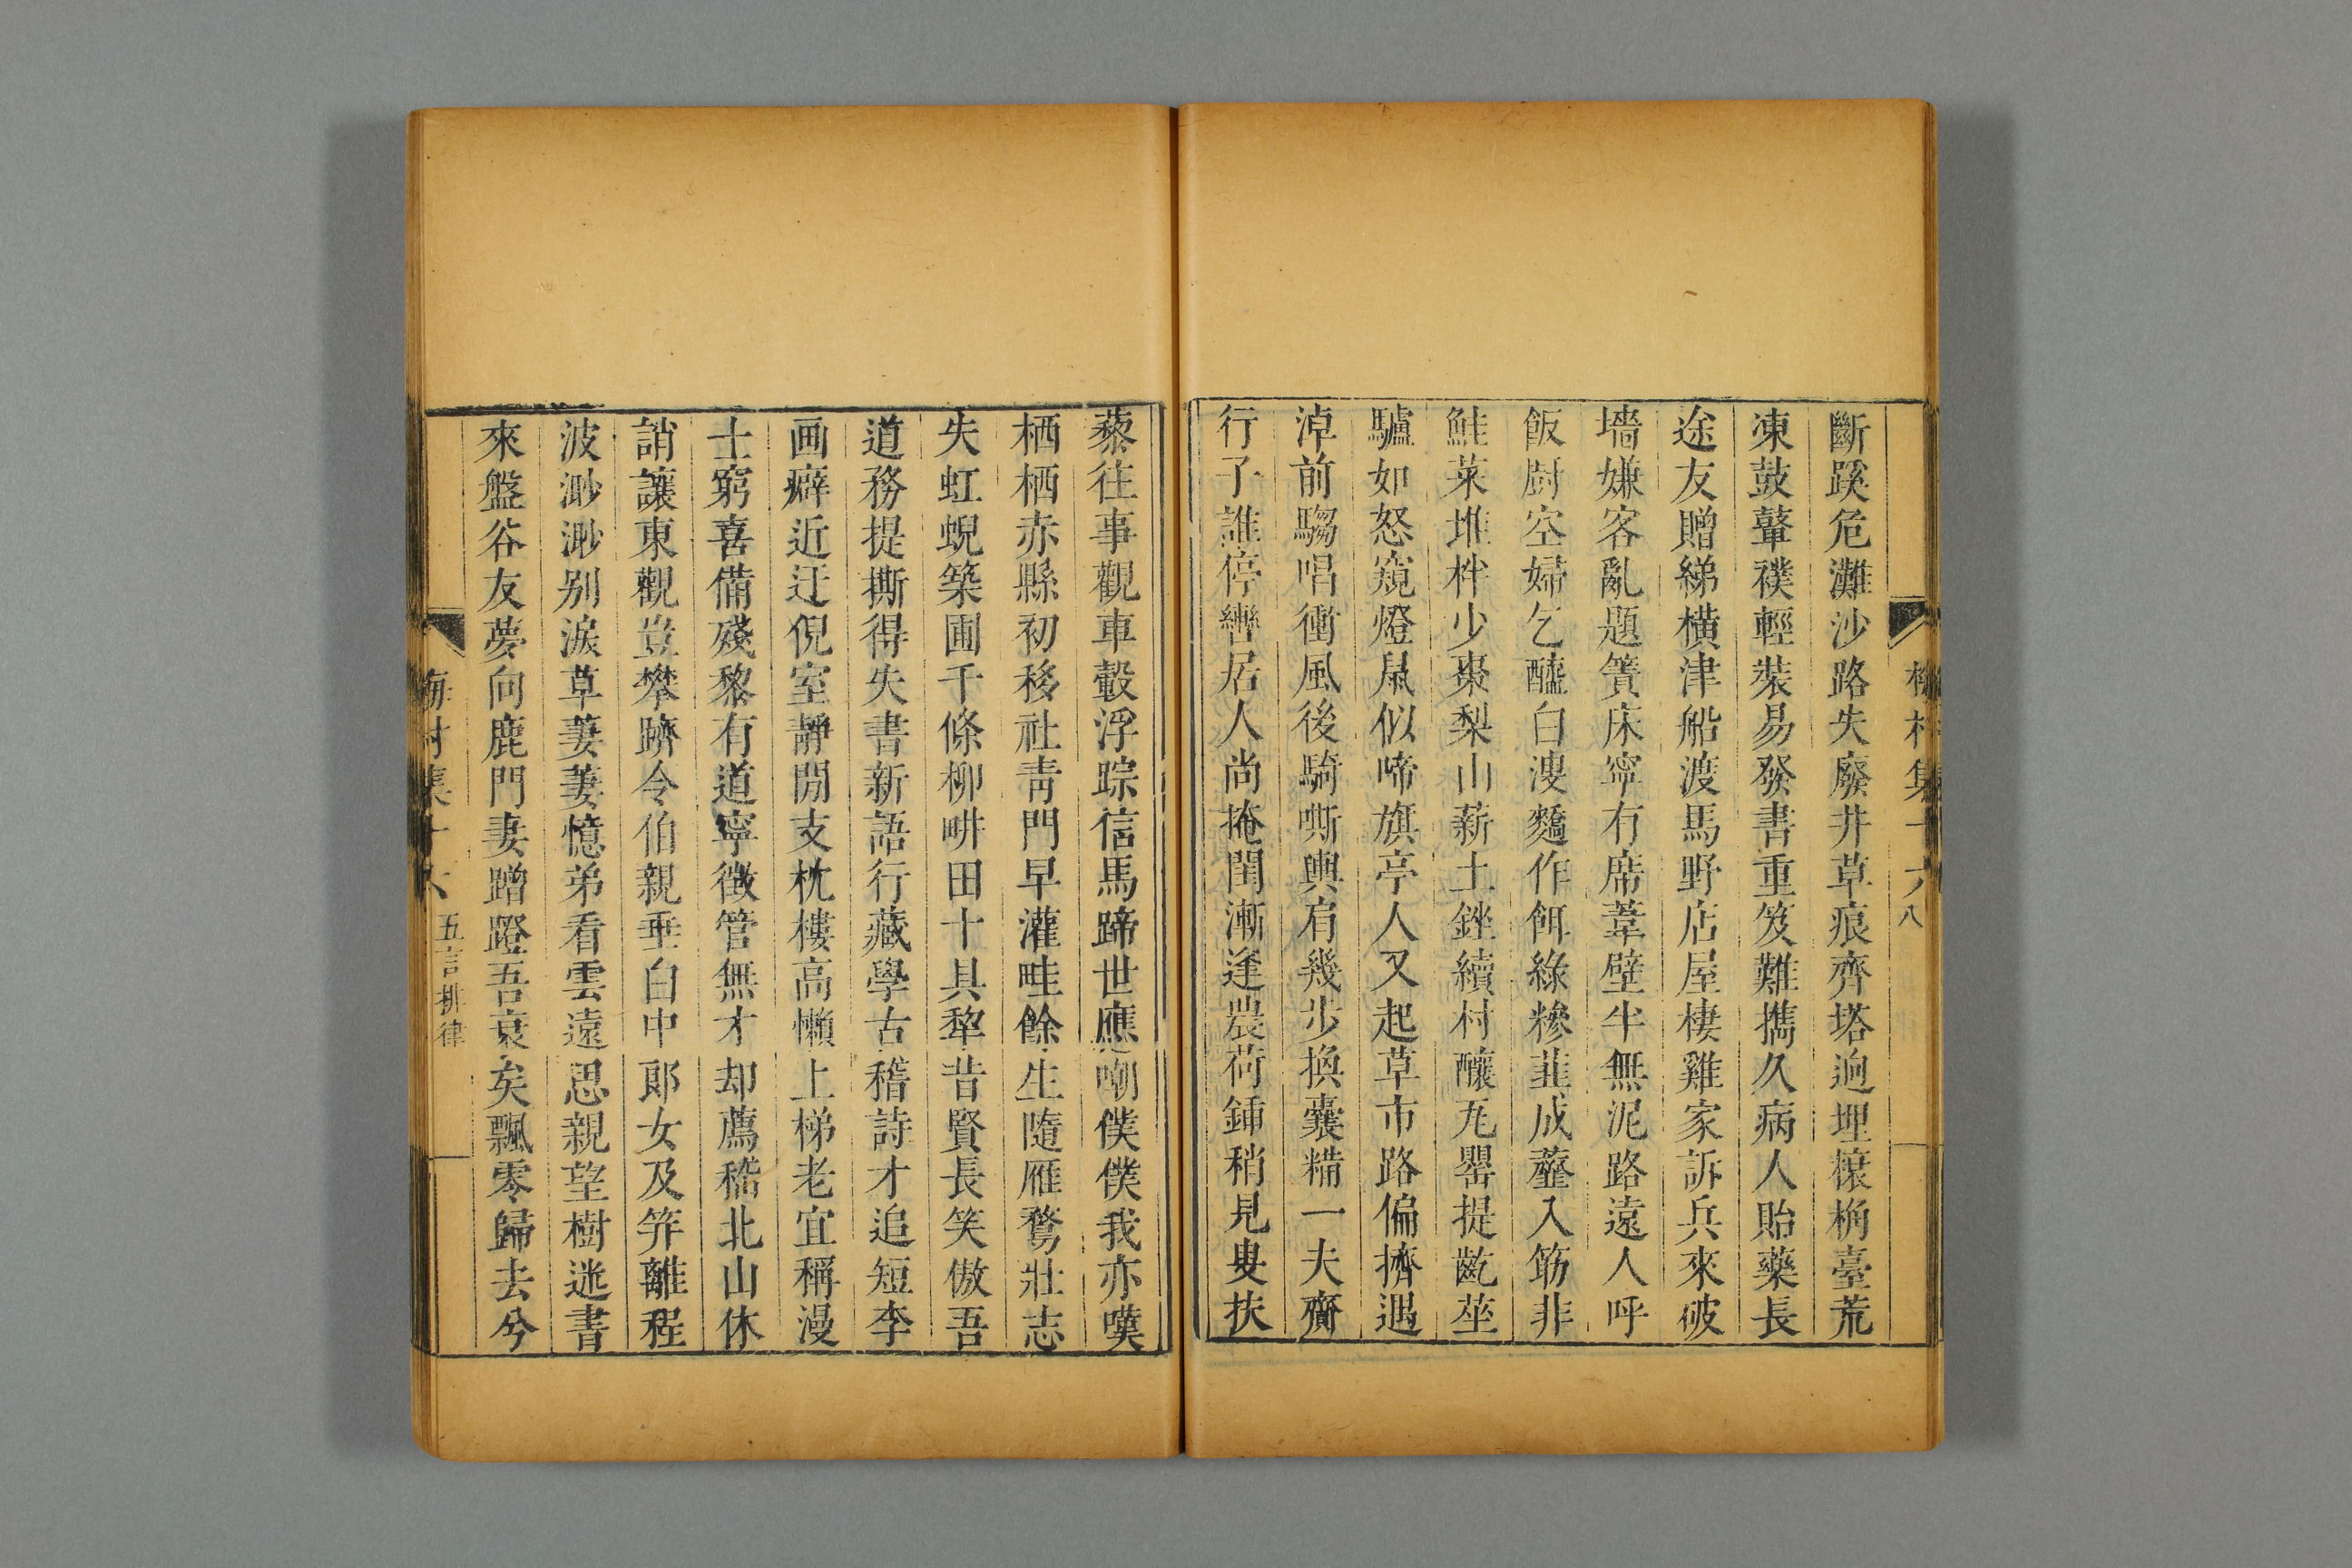 斷蹊危灘沙路失廢井草痕齊塔迥埋榱桷臺荒
凍鼓鼙襆輕裝易發書重笈難攜久病人貽藥長
途友贈綈橫津船渡馬野店屋棲雞家訴兵來破
墻嫌客亂題簀床寧有席葦壁半無泥路遠人呼
飯廚空婦乞醯白溲麵作餌綠糝韭成虀入筯非
鮭菜堆柈少棗梨山薪土銼續村釀瓦罌提齕莝
驢如怒窺燈鼠似啼旗亭人又起草市路偏擠遇
淖前騶唱衝風後騎嘶輿肩幾步換囊糒一夫齎
行子誰停轡居人尚掩閨漸逢農荷鍤稍見叟扶
藜往事觀車轂浮踪信馬蹄世應嘲僕僕我亦嘆
栖栖赤縣初移社靑門早灌畦餘生隨雁鶩壯志
失虹蜺築圃千條柳畊田十具犂昔賢長笑傲吾
道務提撕得失書新語行藏學古稽詩才追短李
画癖近迂倪室靜閒支枕樓高懶上梯老宜稱漫
士窮喜備殘黎有道寧徵管無才却薦嵇北山休
誚讓東觀豈攀躋令伯親垂白中郞女及笄離程
波渺渺别淚草萋萋憶弟看雲遠思親望樹迷書
來盤谷友夢向鹿門妻蹭蹬吾衰矣飄零歸去兮
梅村集十六 五言排律